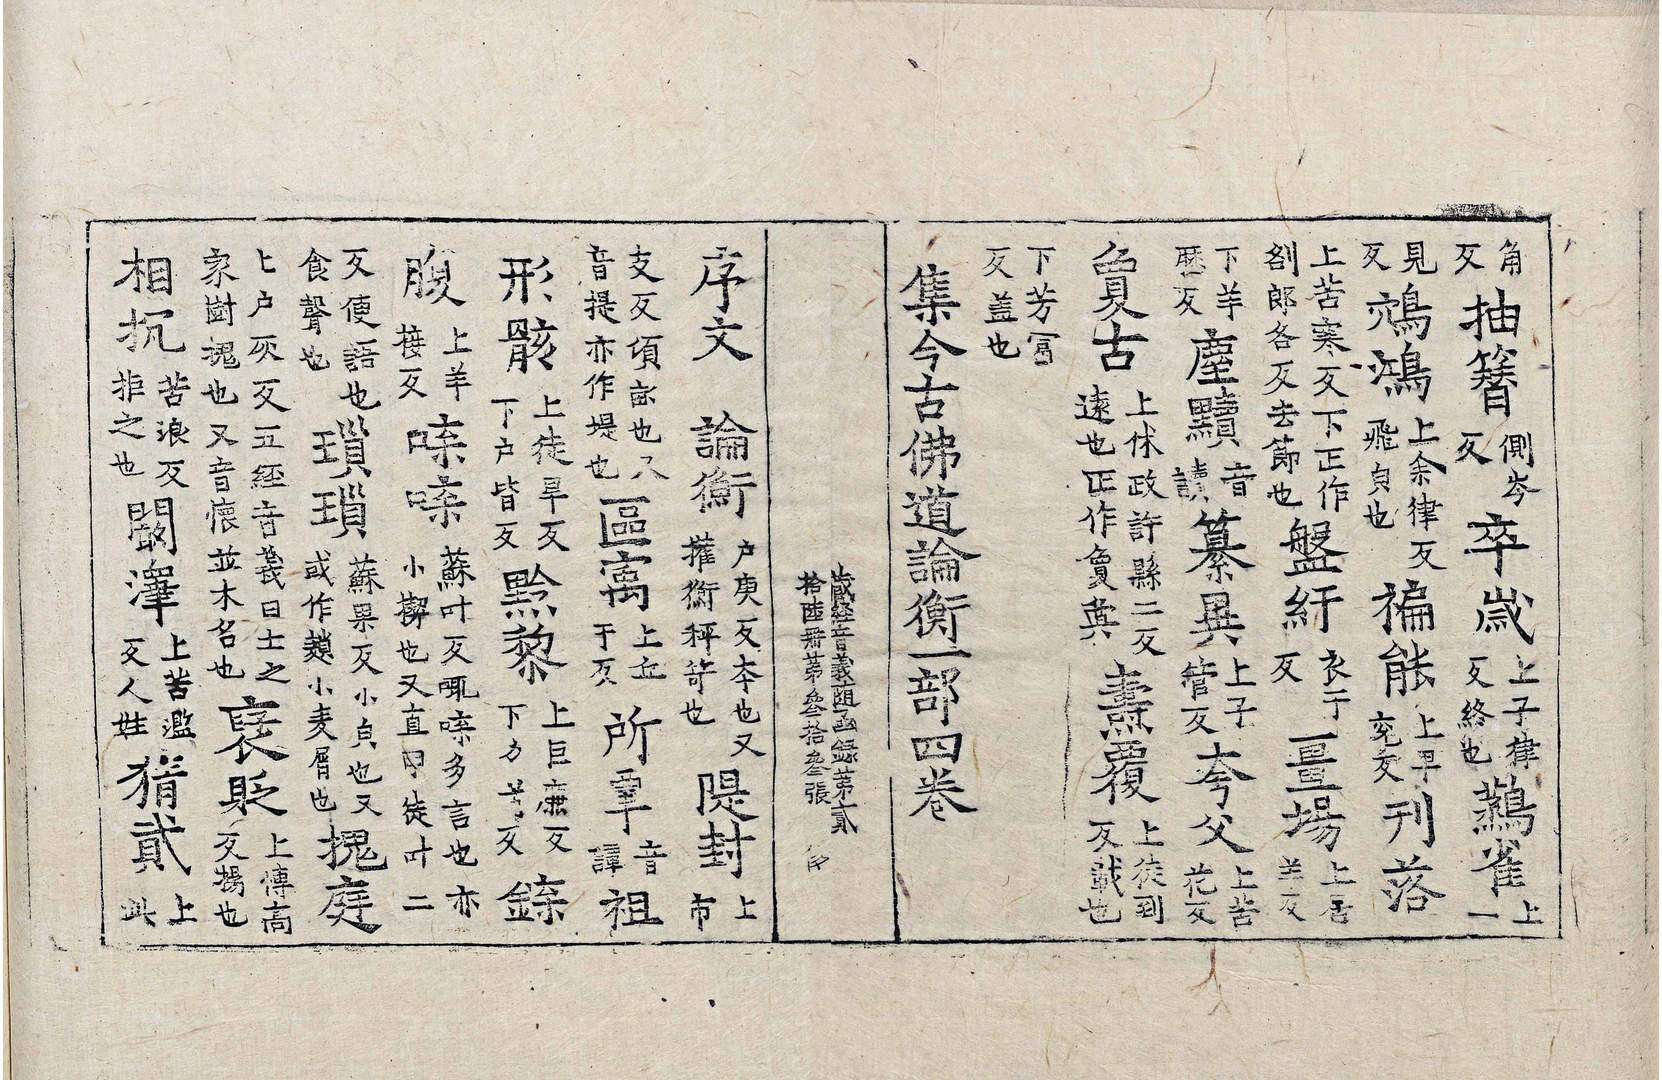 角反抽簪側岑反卒歲上子律反終也鷃雀上一
見反鴥鴻上余律反飛皃也褊能上卑兖反刊落
上苦寒反下正作剖郎各反去節也盤紆衣于反壃場上居羊反
下羊歷反塵黷音讀纂異上子管反夸父上苦花反
敻古上休政許縣二反遠也正作敻奠燾覆上徒到反載也
下芳富反盖也
集今古佛道論衡一部四卷
藏經音義随函錄第貳
拾陸册第叄拾叄張
序文 論衡戶庚反夲也又搉衡秤等也隄封上市
支反頃畝也又音提亦作堤也區㝢上丘于反所覃音譚祖
形骸上徒旱反下戶皆反黔黎上巨廉反下力兮反
腹上羊接反唼唼蘇叶反唼多言也亦小也又直甲徒叶二
反便語也食聲也瑣瑣蘇果反小皃也又或作小麦屑也槐庭
上戶灰反五經音義曰士之冢樹槐也又音懷並木名也襃貶上博高反揚也
相抗苦浪反拒之也闞澤上苦濫反人姓猜貳上此